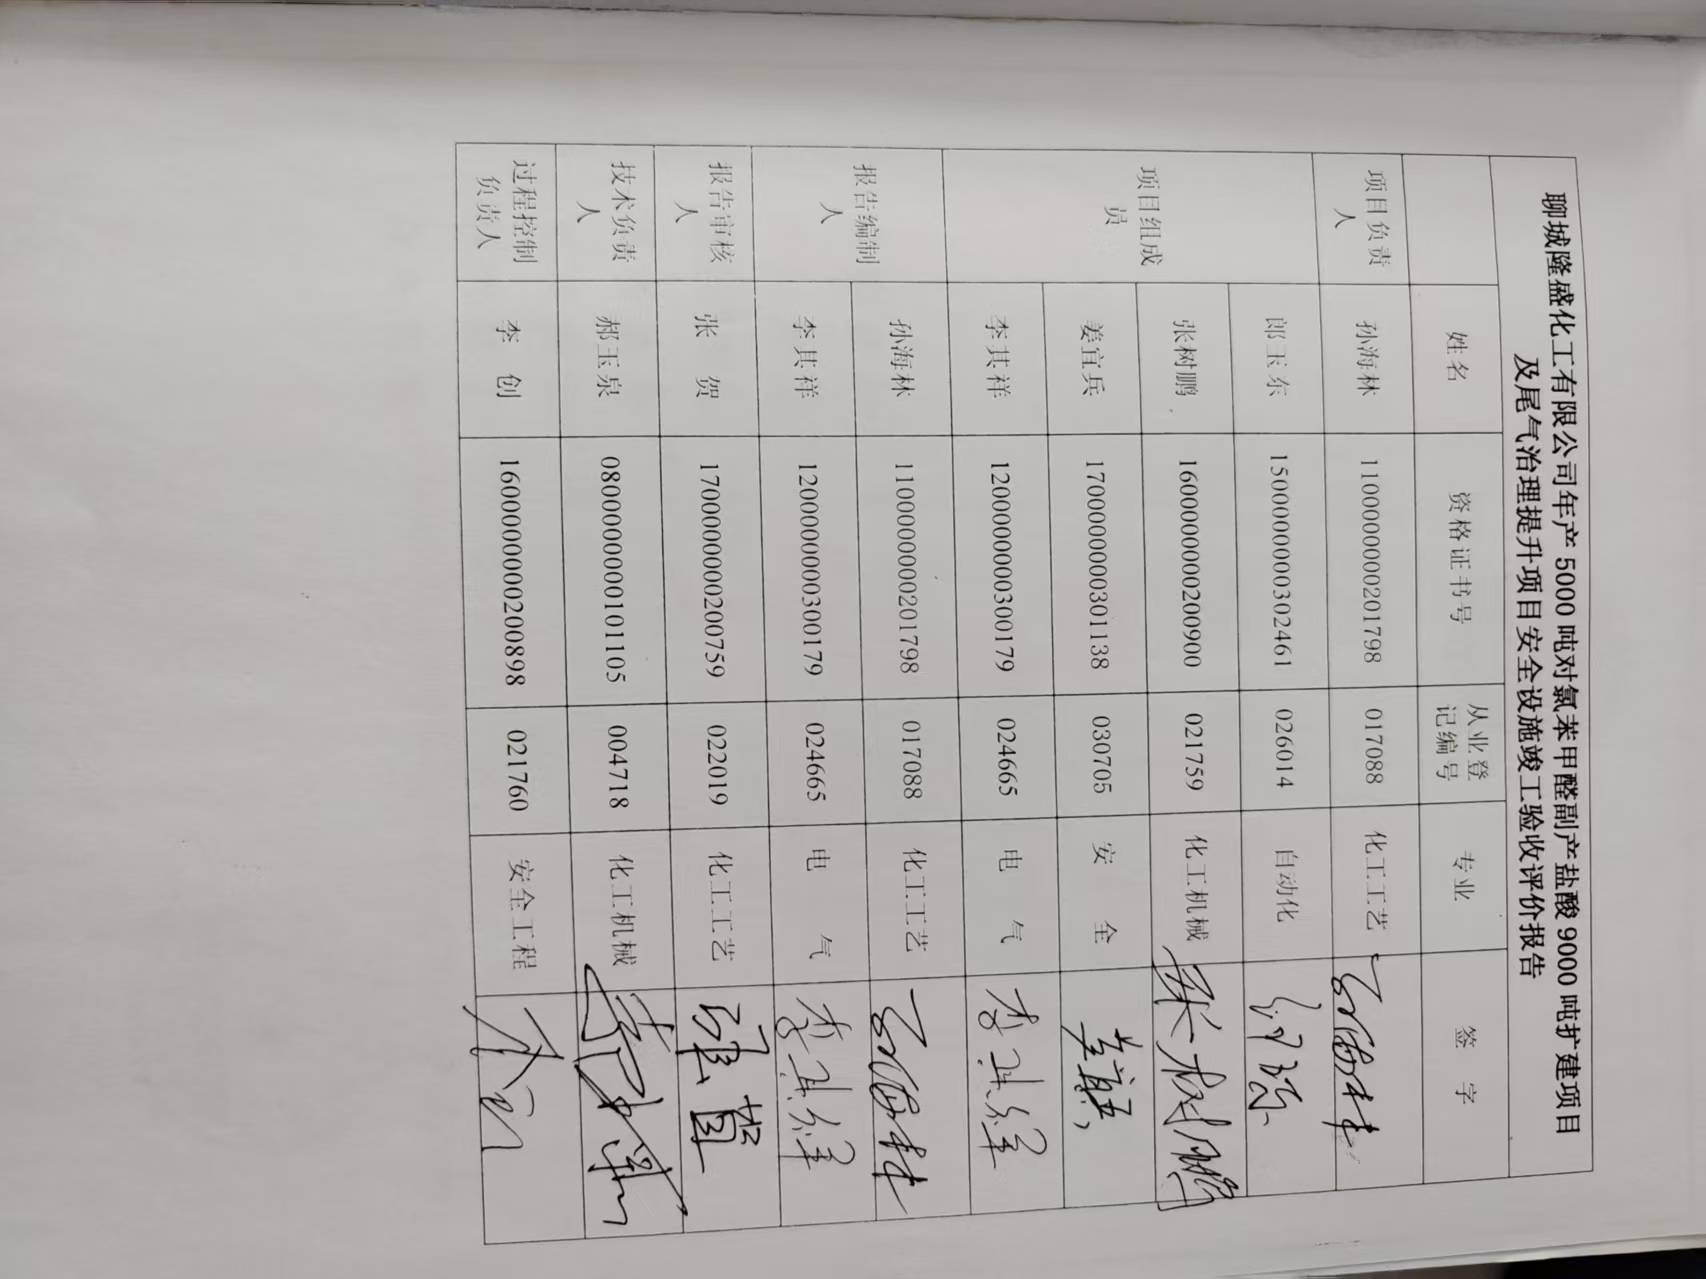 聊城隆盛化工有限公司年产 5000 吨对氯苯甲醛副产盐酸 9000 吨扩建项目
及尾气治理提升项目安全设施竣工验收评价报告
姓名 资格证书号 从业登记编号 专业 签字
项目负责人 孙海林 1100000000201798 017088 化工工艺 孙海林
项目组成员 郎玉东 1500000000302461 026014 自动化
张树鹏 1600000000200900 021759 化工机械 张树鹏
姜宜兵 1700000000301138 030705 安全
李其祥 1200000000300179 024665 电气 李其祥
报告编制人 孙海林 1100000000201798 017088 化工工艺 孙海林
李其祥 1200000000300179 024665 电气 李其祥
报告审核人 张贺 1700000000200759 022019 化工工艺 张贺
技术负责人 郝玉泉 0800000000101105 004718 化工机械
过程控制负责人 李创 1600000000200898 021760 安全工程 李创